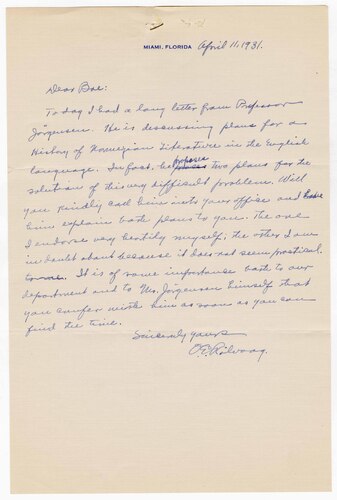 MIAMI, FLORIDA April 11, 1931.
Dear Boe:
Today I had a long letter from Professor
Jörgensen. He is discussing plans for a
History of Norwegian Literature in the English
language. In fact, he proposes two plans for the
solution of this very difficult problem. Will
you kindly call him into your office and have
him explain both plans to you. The one
I endorse very heartily myself; the other I am
in doubt about because it does not seem practical
to me. It is of some importance both to our
department and to Mr. Jörgensen himself that
you confer with him as soon as you can
find the time.
Sincerely yours
O.E. Rölvaag